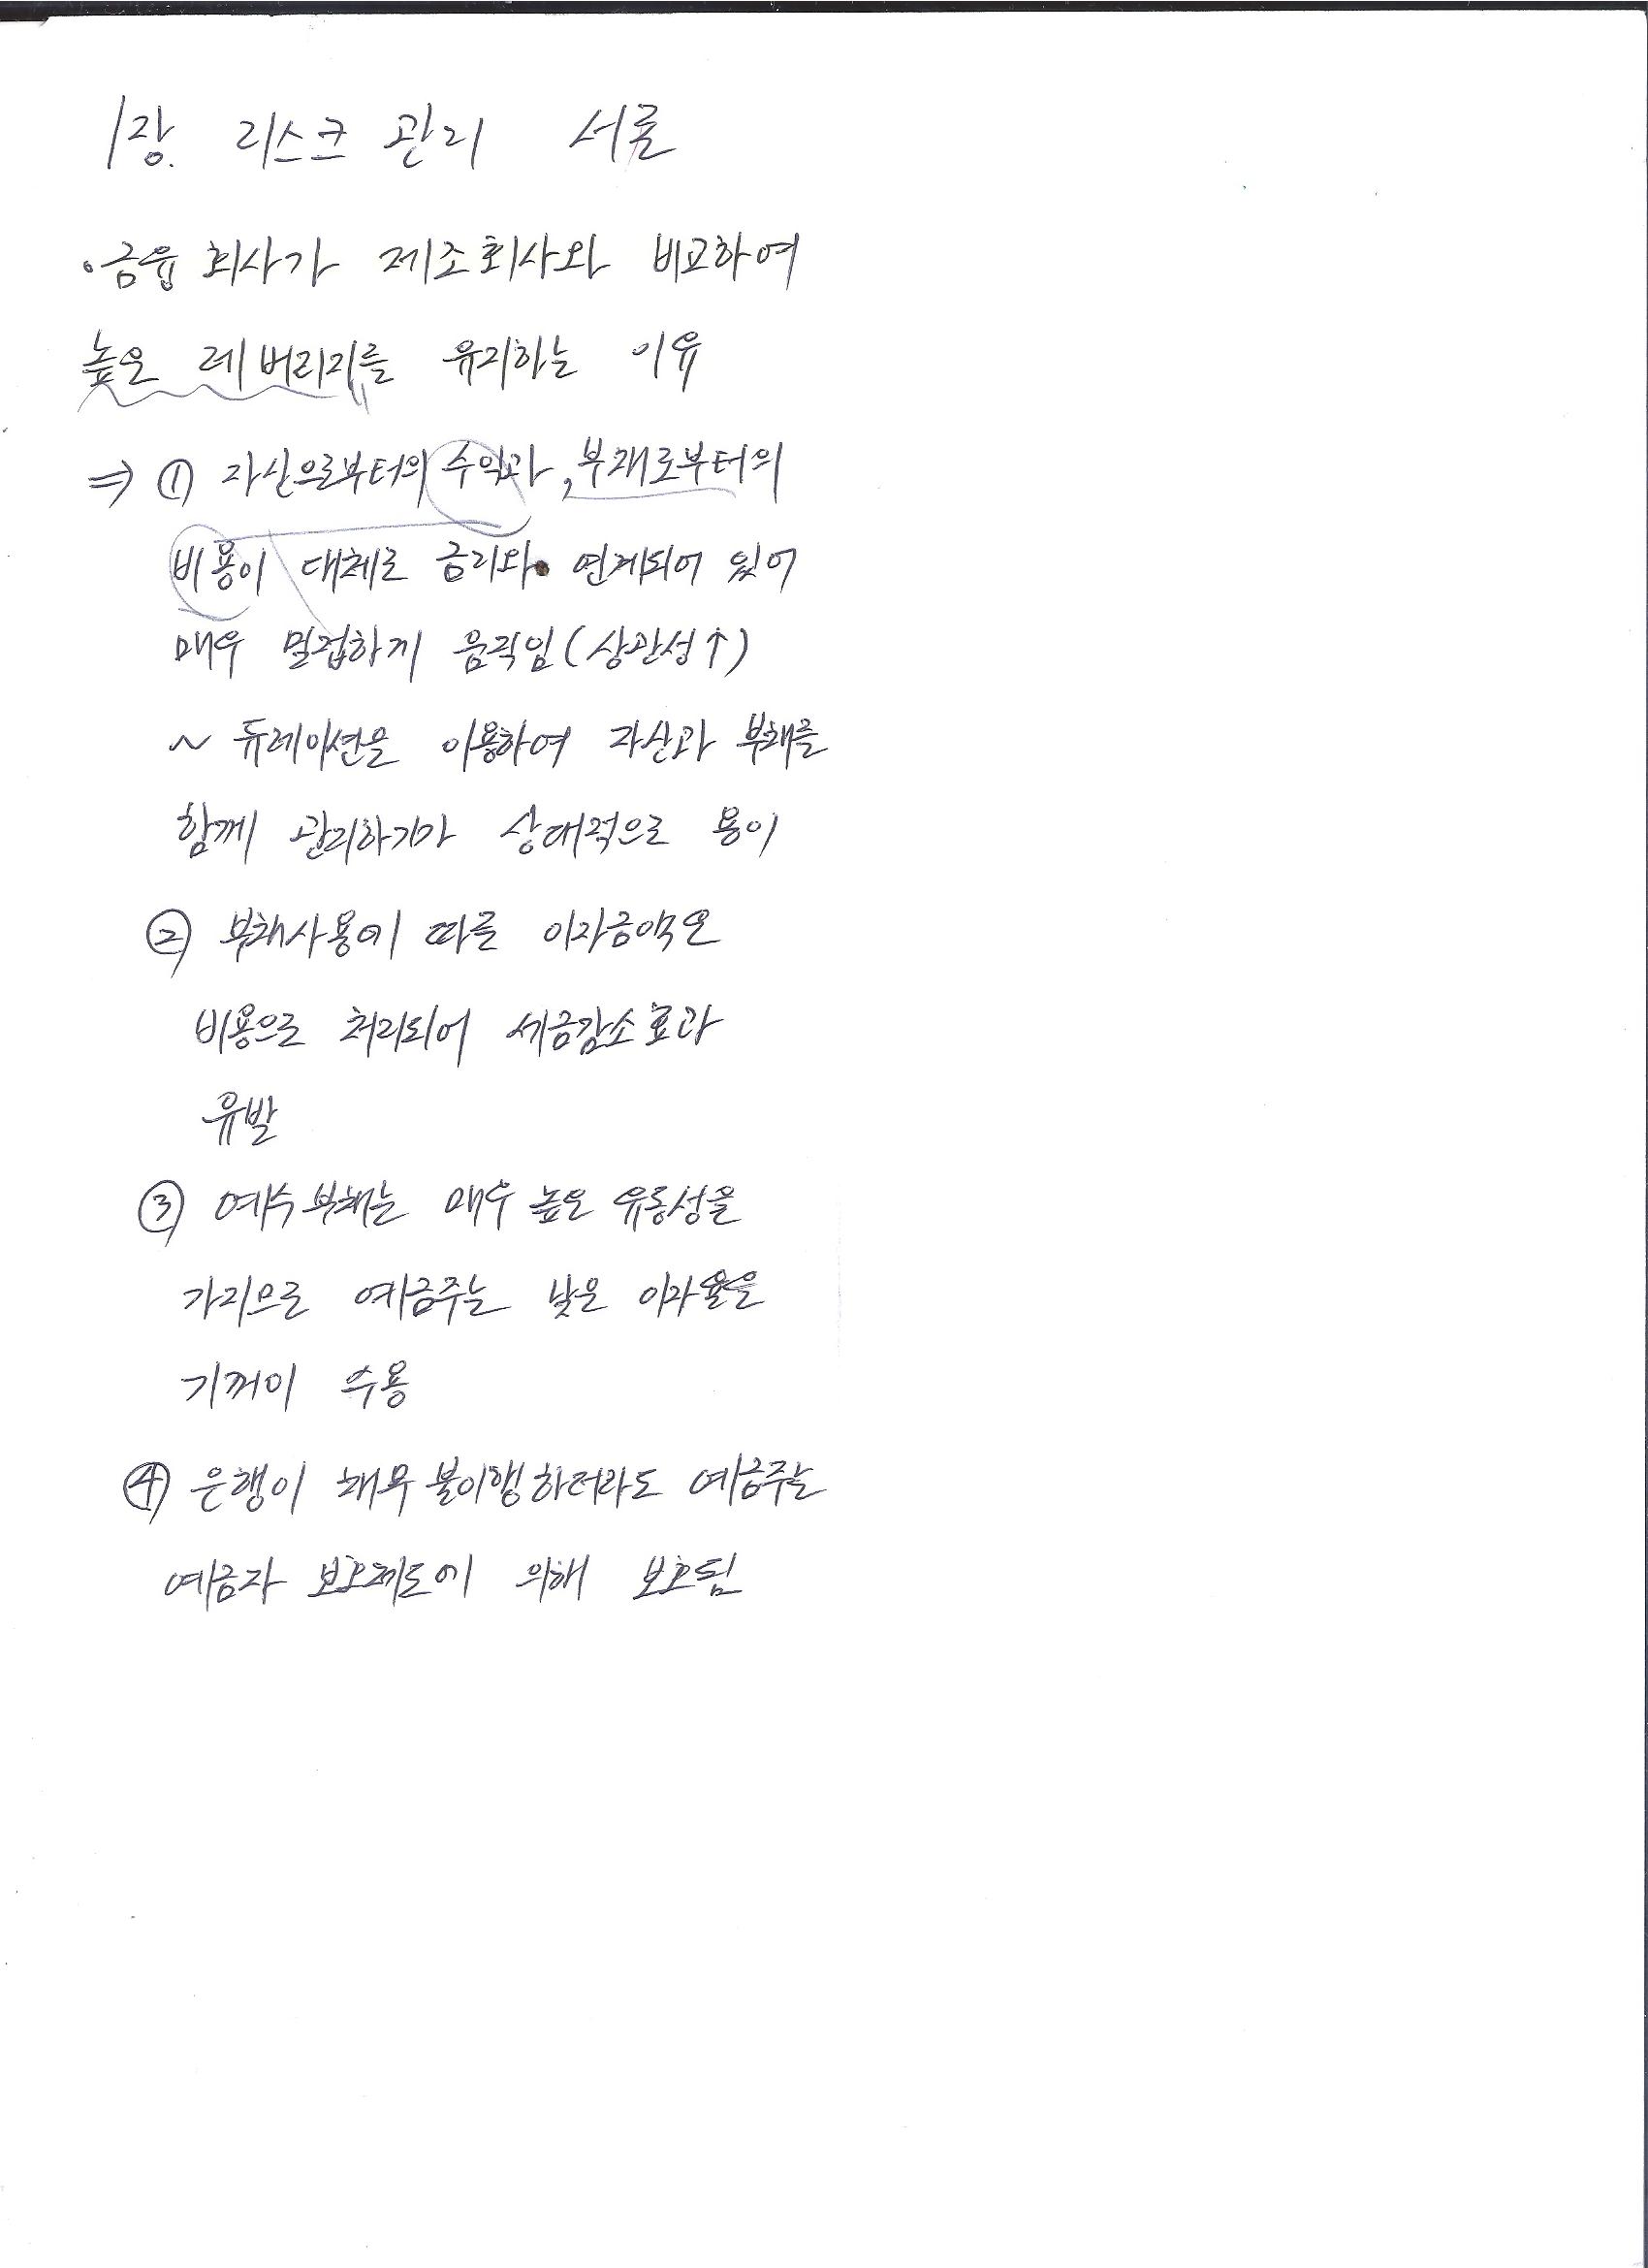 1장. 리스크 관리 서론
·금융 회사가 제조회사와 비교하여
높은 레버리지를 유지하는 이유
⇒ ① 자산으로부터의 수익과, 부채로부터의
비용이 대체로 금리와 연계되어 있어
매우 밀접하게 움직임(상관성↑)
~ 듀레이션을 이용하여 자산과 부채를
함께 관리하기가 상대적으로 용이
② 부채사용에 따른 이자금액은
비용으로 처리되어 세금감소효과
유발
③ 예수부채는 매우 높은 유동성을
가지므로 예금주는 낮은 이자율을
기꺼이 수용
④ 은행이 채무 불이행하더라도 예금주는
예금자 보호제도에 의해 보호됨